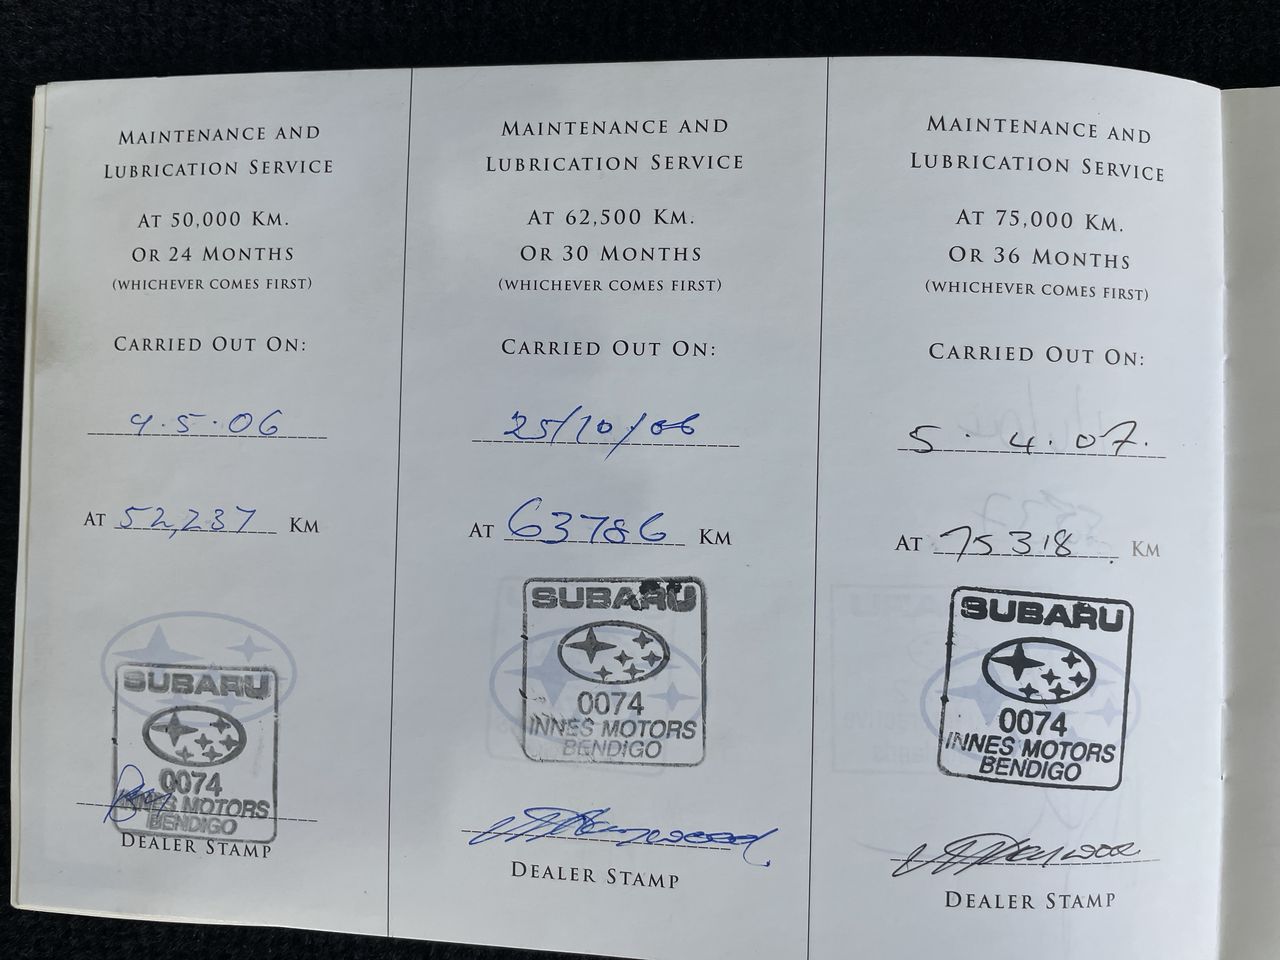 MAINTENANCE AND
LUBRICATION SERVICE
AT 50,000 KM.
OR 24 MONTHS
(WHICHEVER COMES FIRST)
CARRIED OUT ON:
9.5.06
AT 52,237 KM
SUBARU
0074
INNES MOTORS
BENDIGO
DEALER STAMP
MAINTENANCE AND
LUBRICATION SERVICE
AT 62,500 KM.
OR 30 MONTHS
(WHICHEVER COMES FIRST)
CARRIED OUT ON:
25/10/06
AT 63786 KM
SUBARU
0074
INNES MOTORS
BENDIGO
DEALER STAMP
MAINTENANCE AND
LUBRICATION SERVICE
AT 75,000 KM.
OR 36 MONTHS
(WHICHEVER COMES FIRST)
CARRIED OUT ON:
5.4.07.
AT 75318 KM
SUBARU
0074
INNES MOTORS
BENDIGO
DEALER STAMP